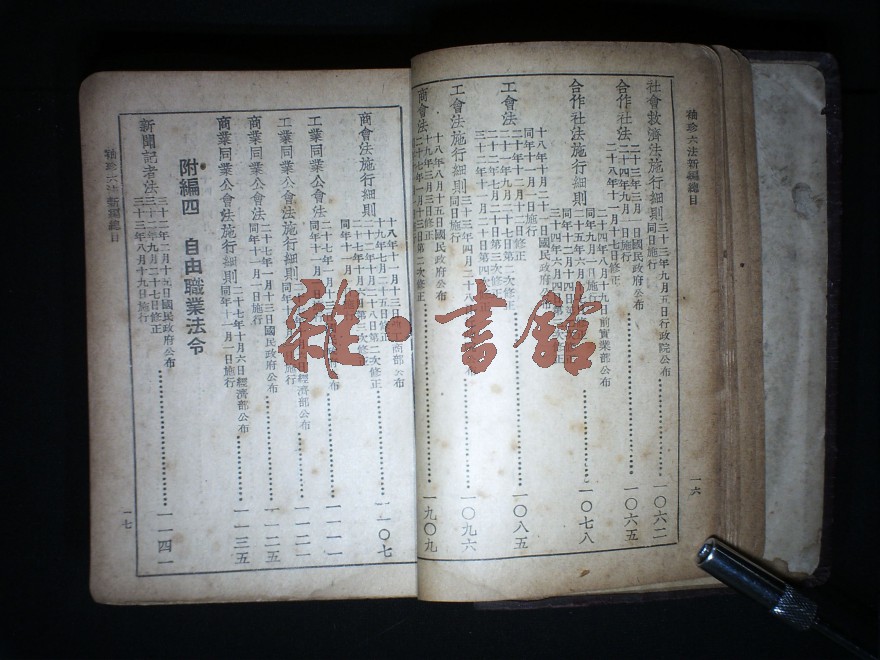 袖珍六法新編總目
一六
社會救濟法施行細則
三十三年九月五日行政院公布
同日施行
一〇六二
合作社法
二十三年三月一日國民政府公布
二十四年九月一日施行
二八年十一月十七日修正
一〇六五
合作社法施行細則
二十四年八月十九日前實業部公布
同年九月一日施行
一〇七八
工會法
十八年十月二十一日國民政府
同年十一月一日施行
二十年十二月十二日修正
二十一年九月二十七日第二次修正
三十二年十一月二十日第四次
一〇八五
工會法施行細則
三十三年四月二十
同日施行
一〇九六
商會法
十八年八月十五日國民政府公布
十九年三月三日修正
二十七年一月十三日第二次修正
一九〇九
商會法施行細則
十八年十一月十三日
商部公布
十九年七月二十五日修正
二十七年十一月二十八日第二次修正
一一〇七
工業同業公會法
二十七年一月十三
同年十一月一日
一一一一
工業同業公會法施行細則
日經濟部公布
施行
一一二一
商業同業公會法
二十七年一月十三日國民政府公布
同年十一月一日施行
一一二五
商業同業公會法施行細則
二十七年十月六日經濟部公布
同年十一月一日施行
一一三五
附編四 自由職業法令
新聞記者法
三十二年二月十五日國民政府公布
三十二年九月二十七日修正
三十三年八月十九日施行
一一四一
袖珍六法新編總目
一七
雜·書館